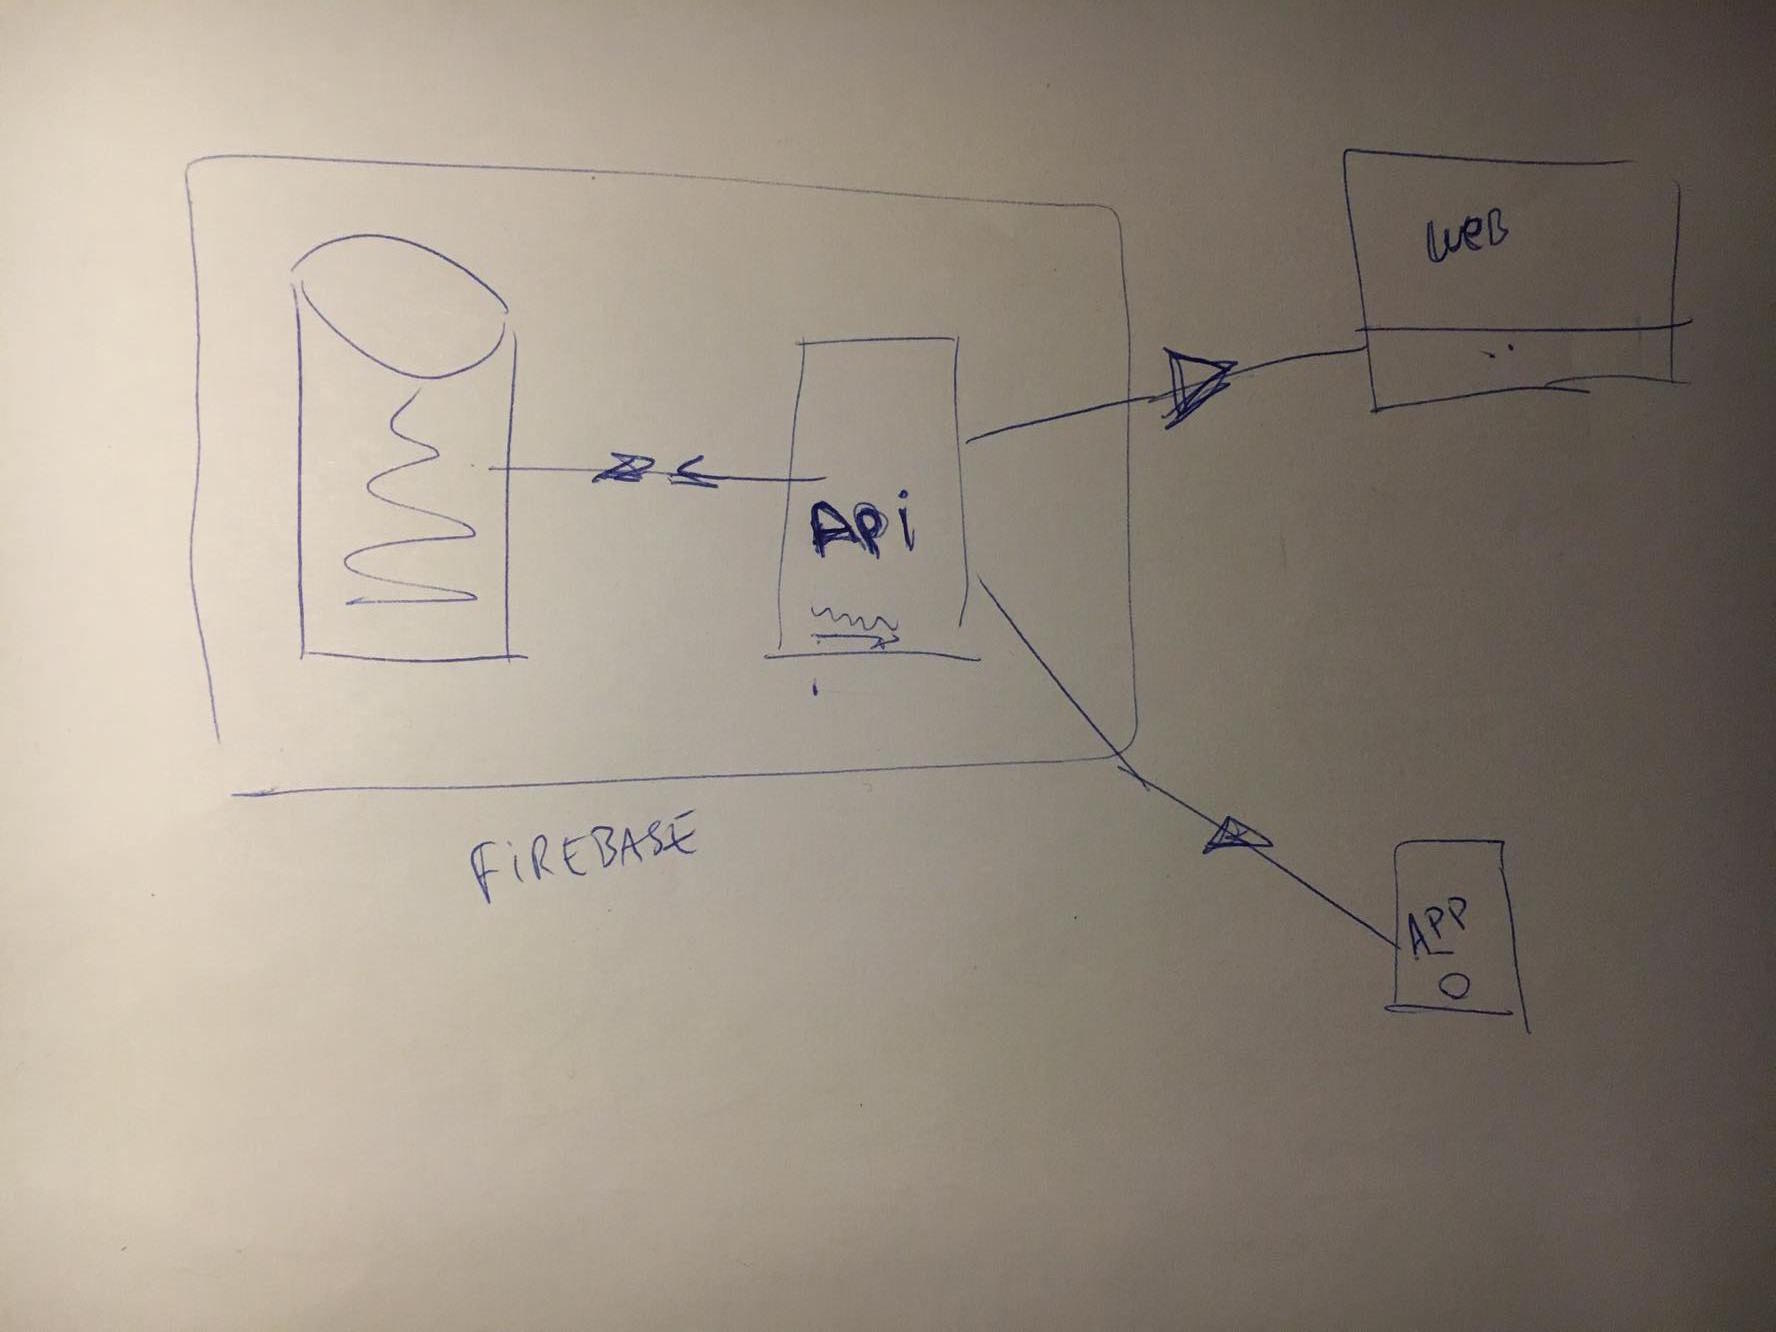 WEB
APi
FiREBASE
APP